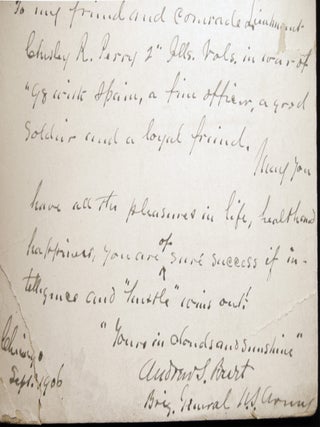 To my friend and comrade Lieutenant
R. Perry 2" Ills. Vols. in war of
"98 with Spain, a fine officer, a good
soldier and a loyal friend.
May you
have all the pleasures in life, health and
happiness, you are of sure success if in-
telligence and "hustle" wins out!
"Yours in clouds and sunshine"
Andrew S. Burt
Brig General U.S. Army
Chicago
Sept. 1906